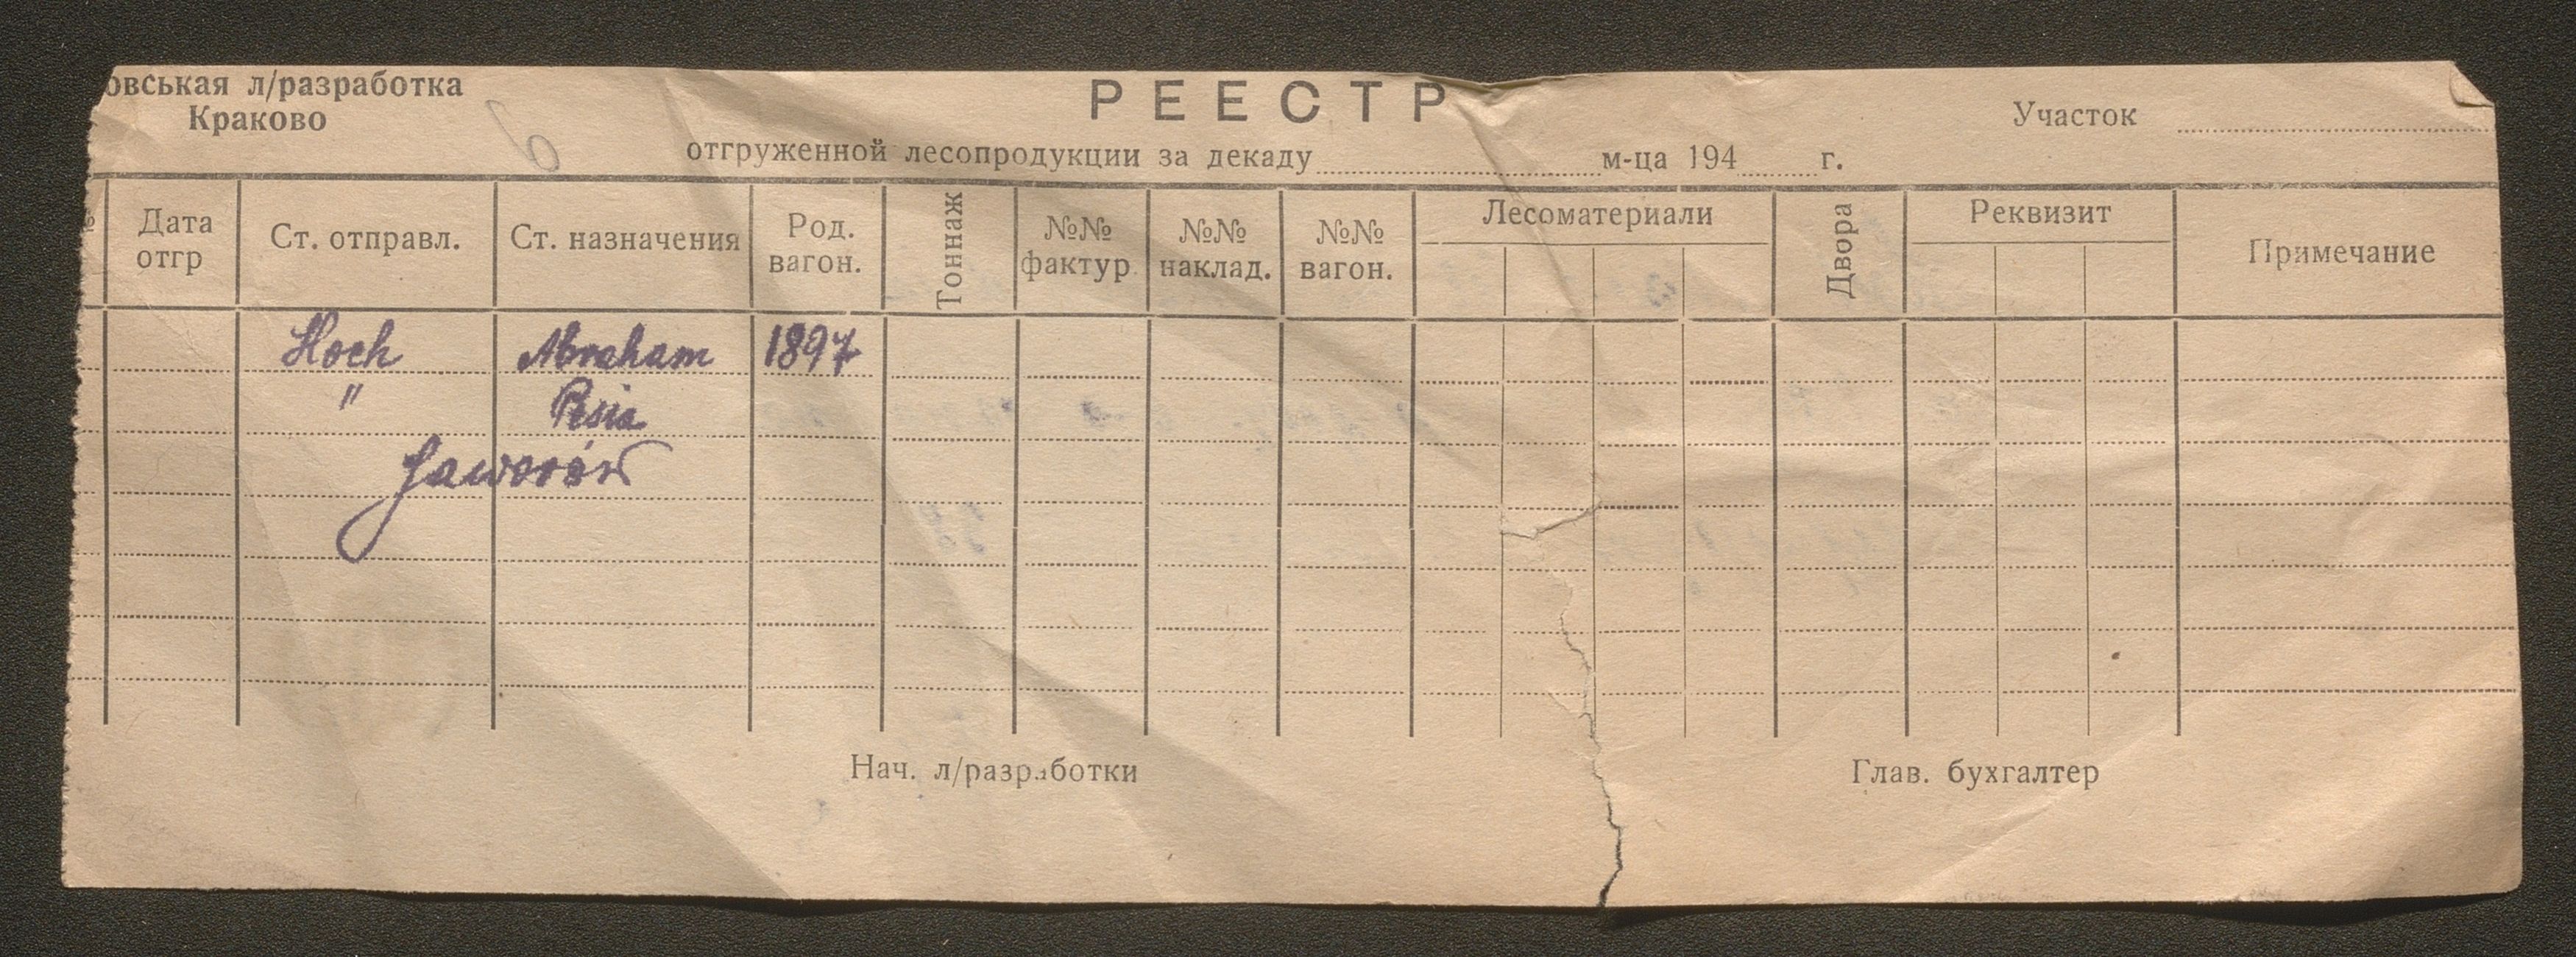 овськая л/разработка
Краково
РЕЕСТР
отгруженной лесопродукции за декаду м-ца 194 г.
Участок
№ Дата отгр Ст. отправл. Ст. назначения Род. вагон. Тоннаж №№ фактур. №№ наклад. №№ вагон. Лесоматериали Двора Реквизит Примечание
Hoch Abraham 1897
" Pesia
Jaworów
Нач. л/разработки Глав. бухгалтер